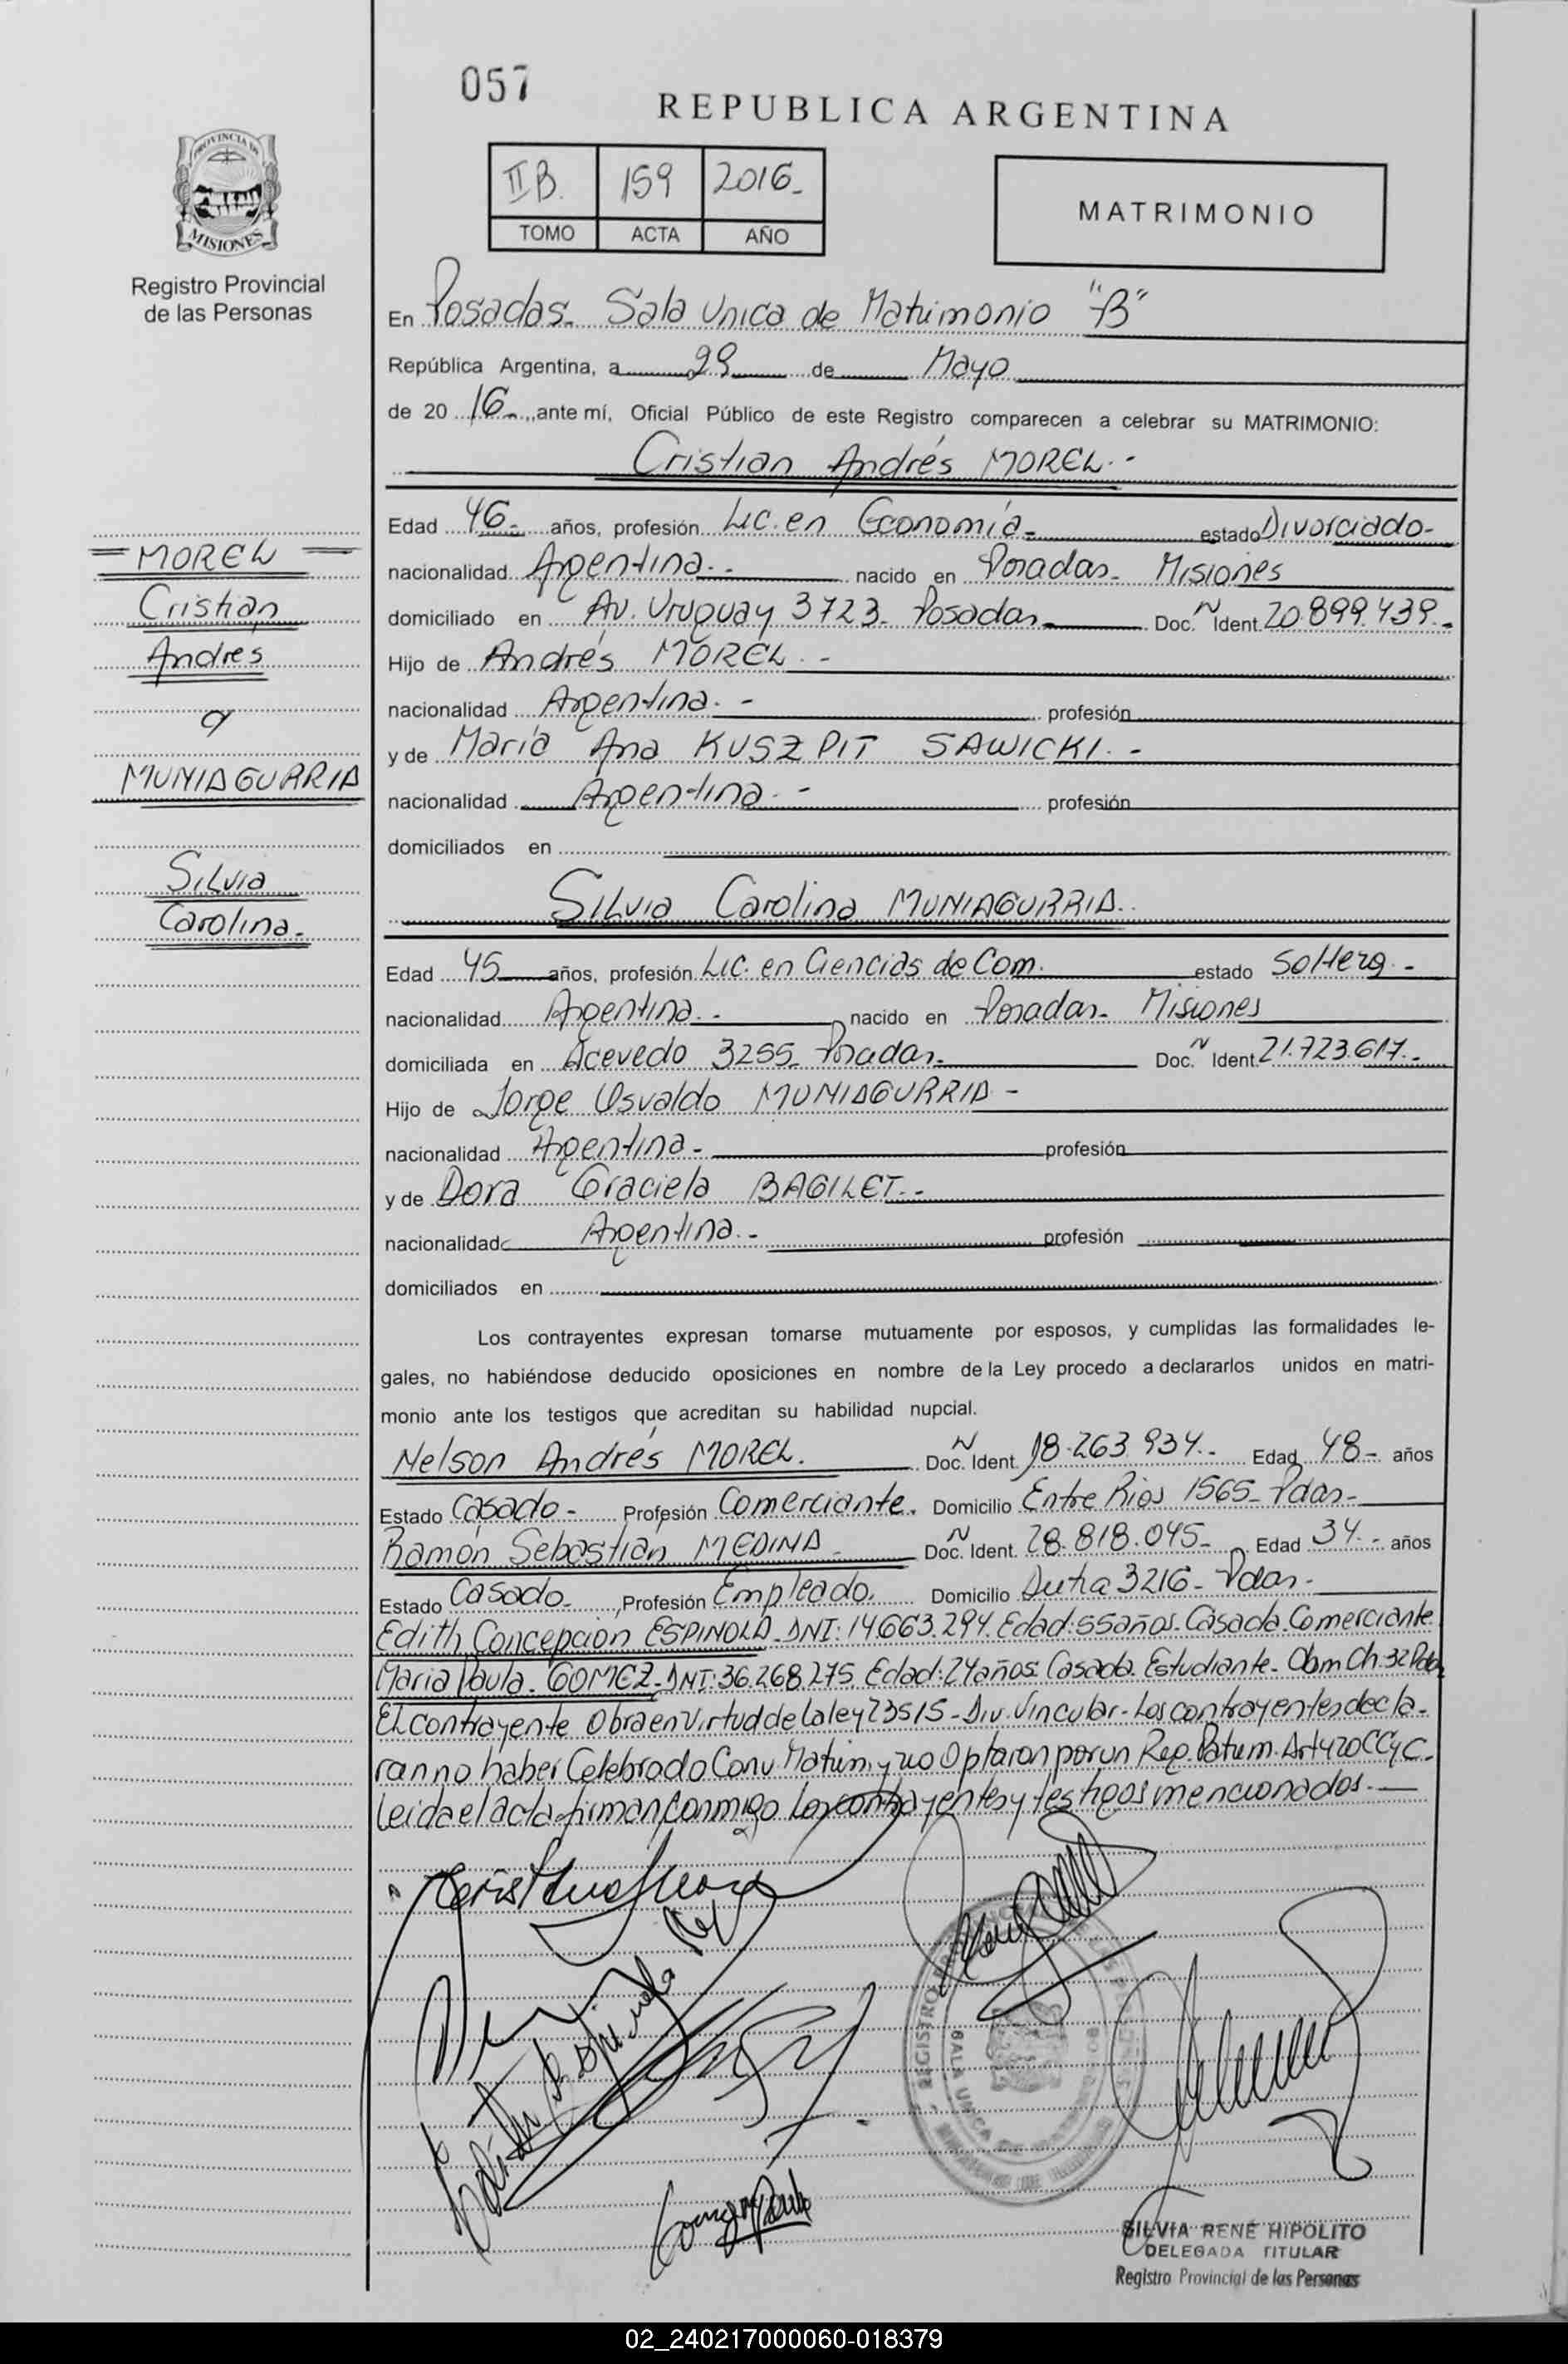 057
REPUBLICA ARGENTINA
PROVINCIA DE
MISIONES
Registro Provincial
de las Personas
II B. 159 2016-
TOMO ACTA AÑO
MATRIMONIO
En Posadas- Sala Unica de Matrimonio "B"
República Argentina, a 29 de Mayo
de 20 16-, ante mí, Oficial Público de este Registro comparecen a celebrar su MATRIMONIO:
Cristian Andrés MOREL.-
Edad 46- años, profesión Lic. en Economía- estado Divorciado-
nacionalidad Argentina.- nacido en Posadas- Misiones
domiciliado en Av. Uruguay 3723- Posadas- Doc. N Ident. 20.899.439.-
Hijo de Andrés MOREL.-
nacionalidad Argentina.- profesión
y de María Ana KUSZPIT SAWICKI.-
nacionalidad Argentina.- profesión
domiciliados en
= MOREL =
Cristian
Andres
MUNIAGURRIA
Silvia
Carolina-
Silvia Carolina MUNIAGURRIA.
Edad 45 años, profesión Lic. en Ciencias de Com. estado Soltera.-
nacionalidad Argentina.- nacido en Posadas- Misiones
domiciliada en Acevedo 3255- Posadas- Doc. N Ident. 21.723.617.-
Hijo de Jorge Osvaldo MUNIAGURRIA-
nacionalidad Argentina- profesión
y de Dora Graciela BAGILET.-
nacionalidad Argentina.- profesión
domiciliados en
Los contrayentes expresan tomarse mutuamente por esposos, y cumplidas las formalidades le-
gales, no habiéndose deducido oposiciones en nombre de la Ley procedo a declararlos unidos en matri-
monio ante los testigos que acreditan su habilidad nupcial.
Nelson Andrés MOREL. Doc. N Ident. 18.263.934.- Edad 48- años
Estado Casado- Profesión Comerciante. Domicilio Entre Rios 1565- Pdas-
Ramón Sebastián MEDINA- Doc. N Ident. 28.818.045- Edad 34.- años
Estado Casado- Profesión Empleado. Domicilio Dutra 3216- Pdas-
Edith Concepción ESPINOLA- DNI: 14.663.294. Edad: 55 años. Casada. Comerciante.
Maria Paula. GOMEZ- DNI: 36.268.275. Edad: 24 años. Casada. Estudiante- Ch. 32 Pdas
El contrayente Obra en Virtud de la ley 23515- Div. Vincular- Los contrayentes decla-
ran no haber Celebrado Conv. Matrim. y no Optaron por un Reg. Patrim. Art 420 CCyC-
Leida el acta firman conmigo los contrayentes y testigos mencionados.-
Gomez Paula
SALA UNICA
SILVIA RENÉ HIPOLITO
DELEGADA TITULAR
Registro Provincial de las Personas
02_240217000060-018379